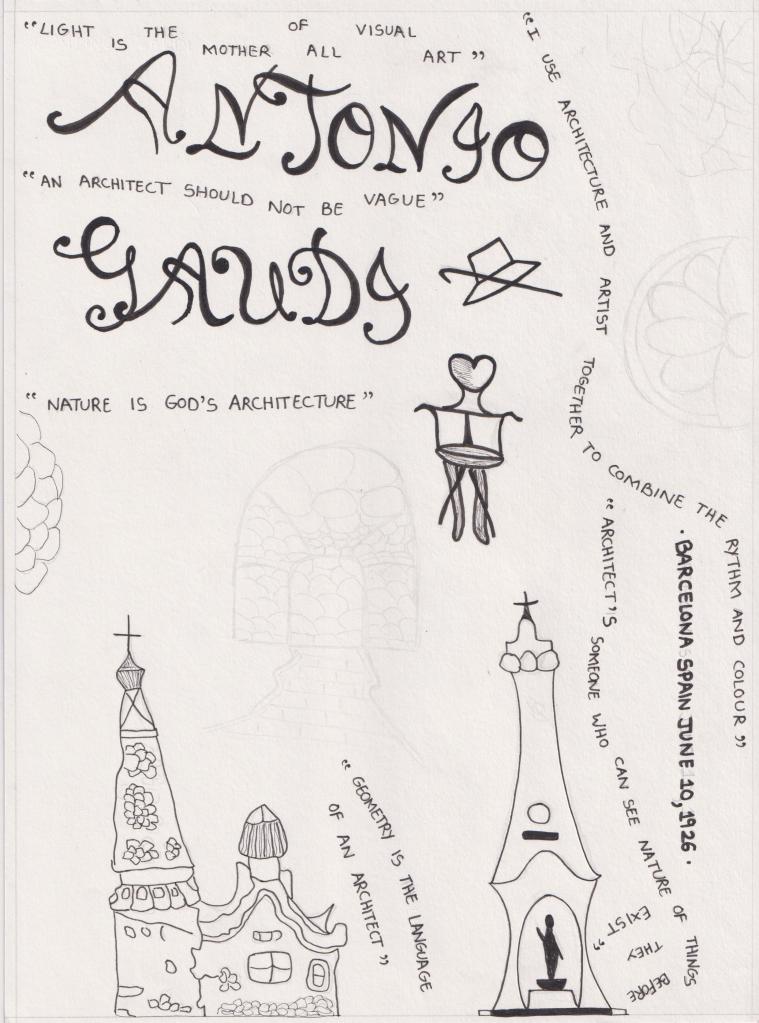 “LIGHT IS THE MOTHER OF ALL VISUAL ART”
ANTONIO
“AN ARCHITECT SHOULD NOT BE VAGUE”
GAUDI
“NATURE IS GOD'S ARCHITECTURE”
“I USE ARCHITECTURE AND ARTIST TOGETHER TO COMBINE THE RYTHM AND COLOUR”
“ARCHITECT'S SOMEONE WHO CAN SEE NATURE OF THINGS
BEFORE
THEY
EXIST”
·BARCELONA SPAIN JUNE 10, 1926·
“GEOMETRY IS THE LANGUAGE
OF AN ARCHITECT”